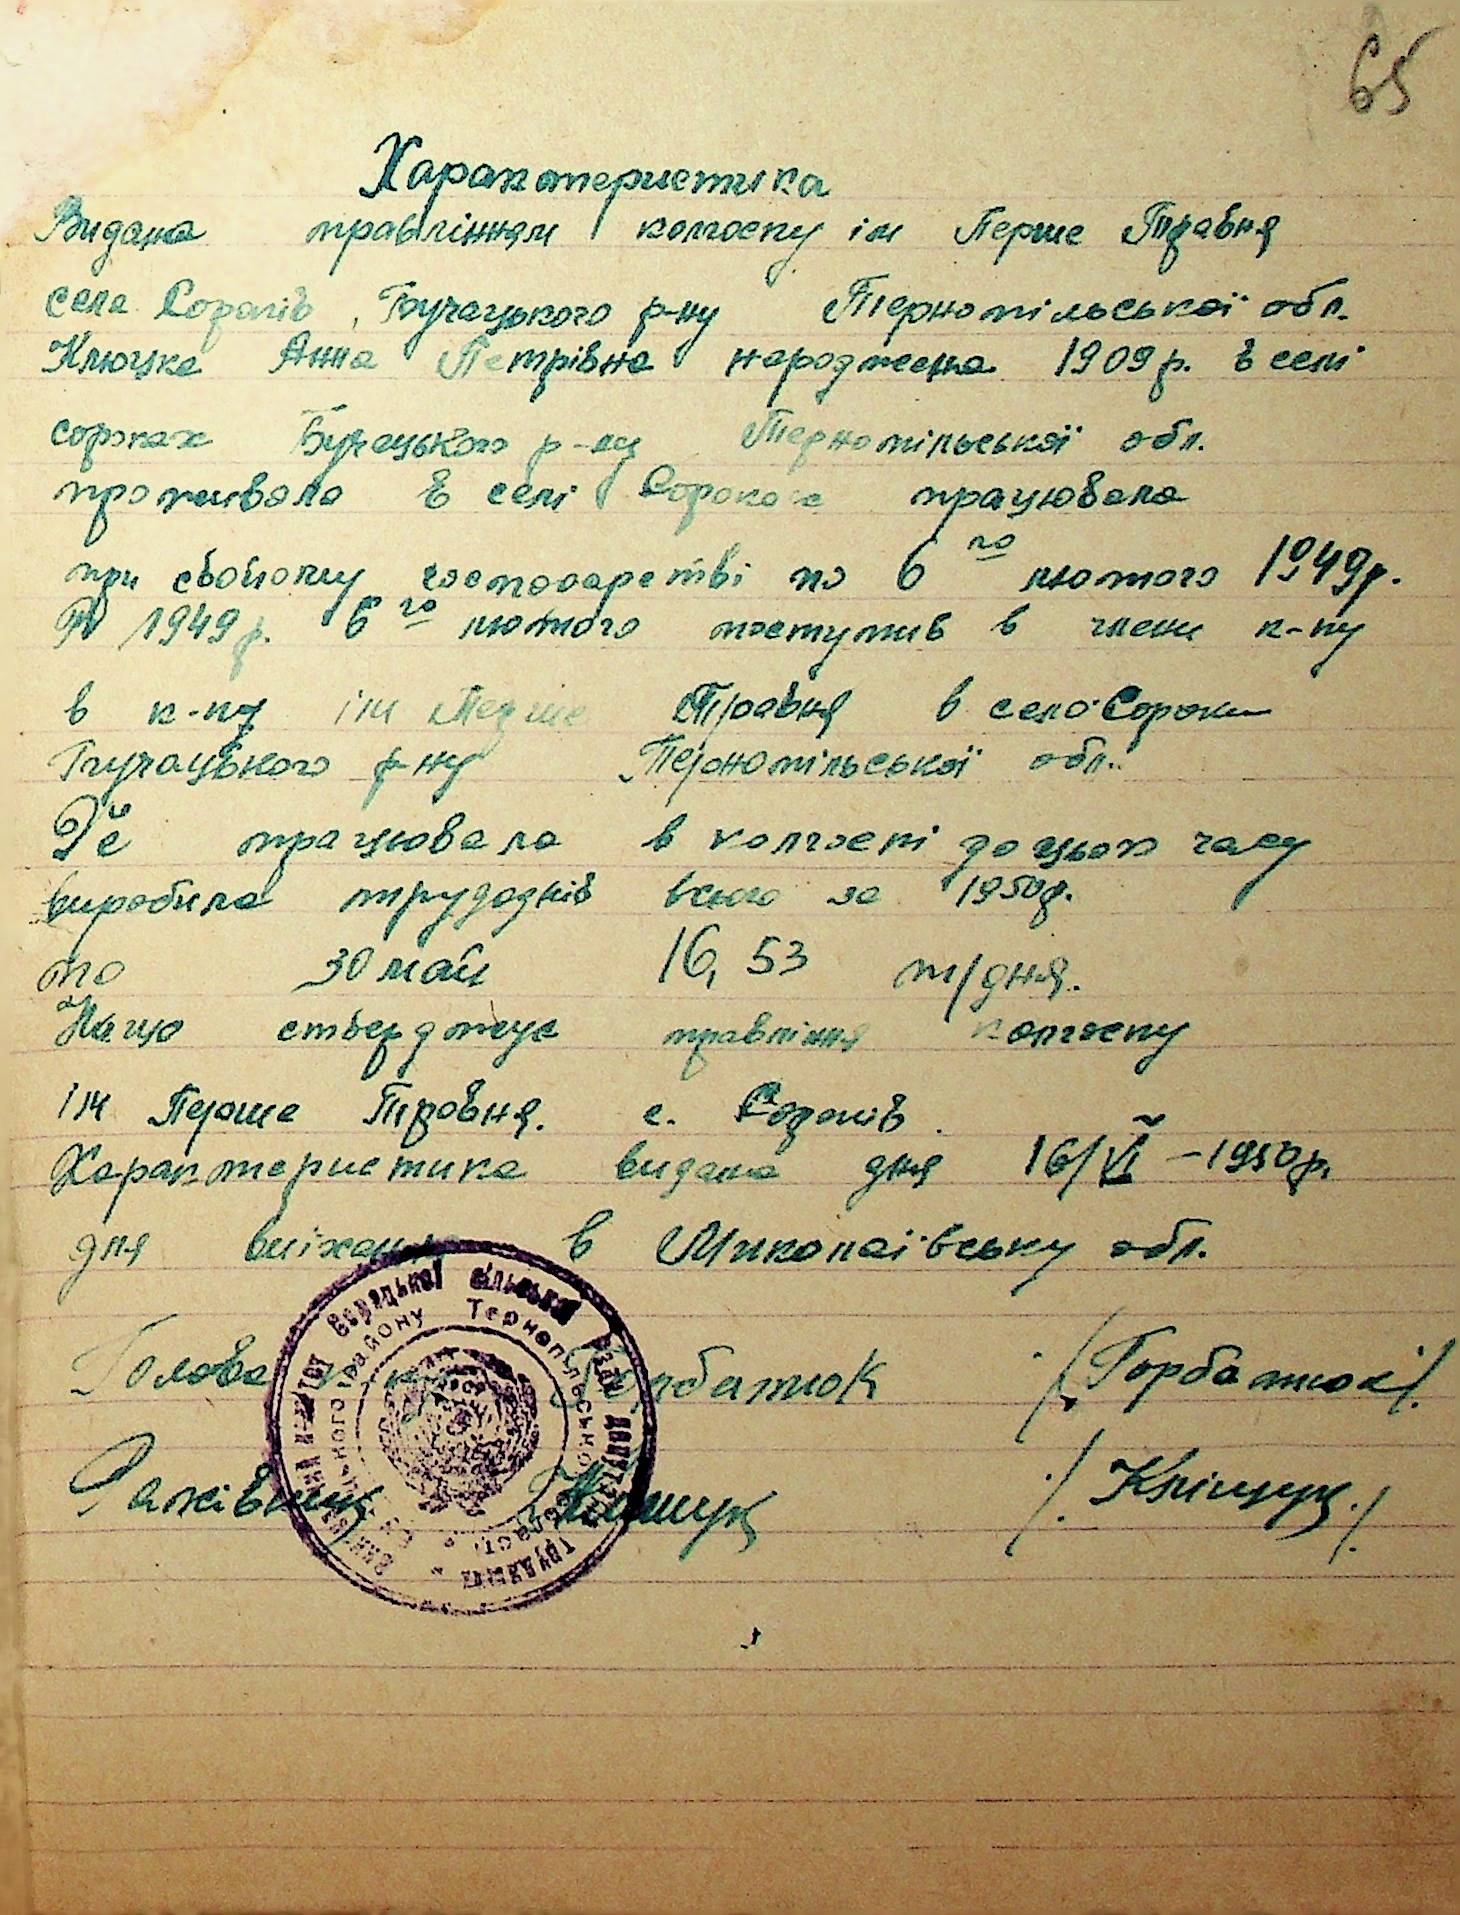 65
Характеристика
Видана правлінням колгоспу ім Перше Травня
села Сороків, Бучацького р-ну Тернопільської обл.
Клюцка Анна Петрівна народжена 1909 р. в селі
сороках Бучацького р-ну Тернопільської обл.
проживала в селі Сороках працювала
при свойому господарстві по 6го лютого 1949р.
В 1949 р. 6го лютого поступив в члени к-пу
в к-пу ім Перше Травня в село Сороки
Бучацького р-ну Тернопільської обл.
Де працювала в колгоспі до цього часу
виробила трудоднів всього за 1950р.
по 30 май 16,53 т/дня.
На що стверджує правління колгоспу
ім Перше Травня. с. Сороків.
Характеристика видана дня 16/VI – 1950р.
для виїханя в Миколаївську обл.
Голова Горбатюк /Горбатюк/.
Рахівник Кліщук /Кліщук/.
сільської Ради депутатів трудящих
району Тернопільської області